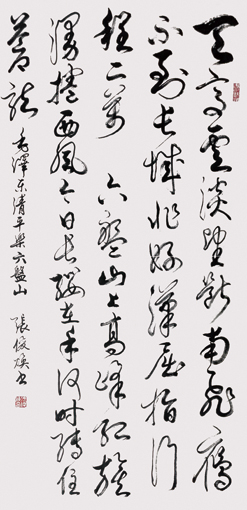 天高雲淡望斷南飛雁
不到長城非好漢屈指行
程二萬 六盤山上高峰紅旗
漫捲西風今日長纓在手何時縛住
蒼龍 毛澤東清平樂六盤山 張俊煥書